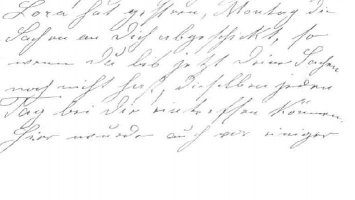 Lora hat gestern, Montag die
Sachen an Dich abgeschickt, so
wenn Du bis jetzt Deine Sachen
noch nicht hast, dieselben jeden
Tag bei Dir eintreffen können.
Hier wurde auch vor einiger